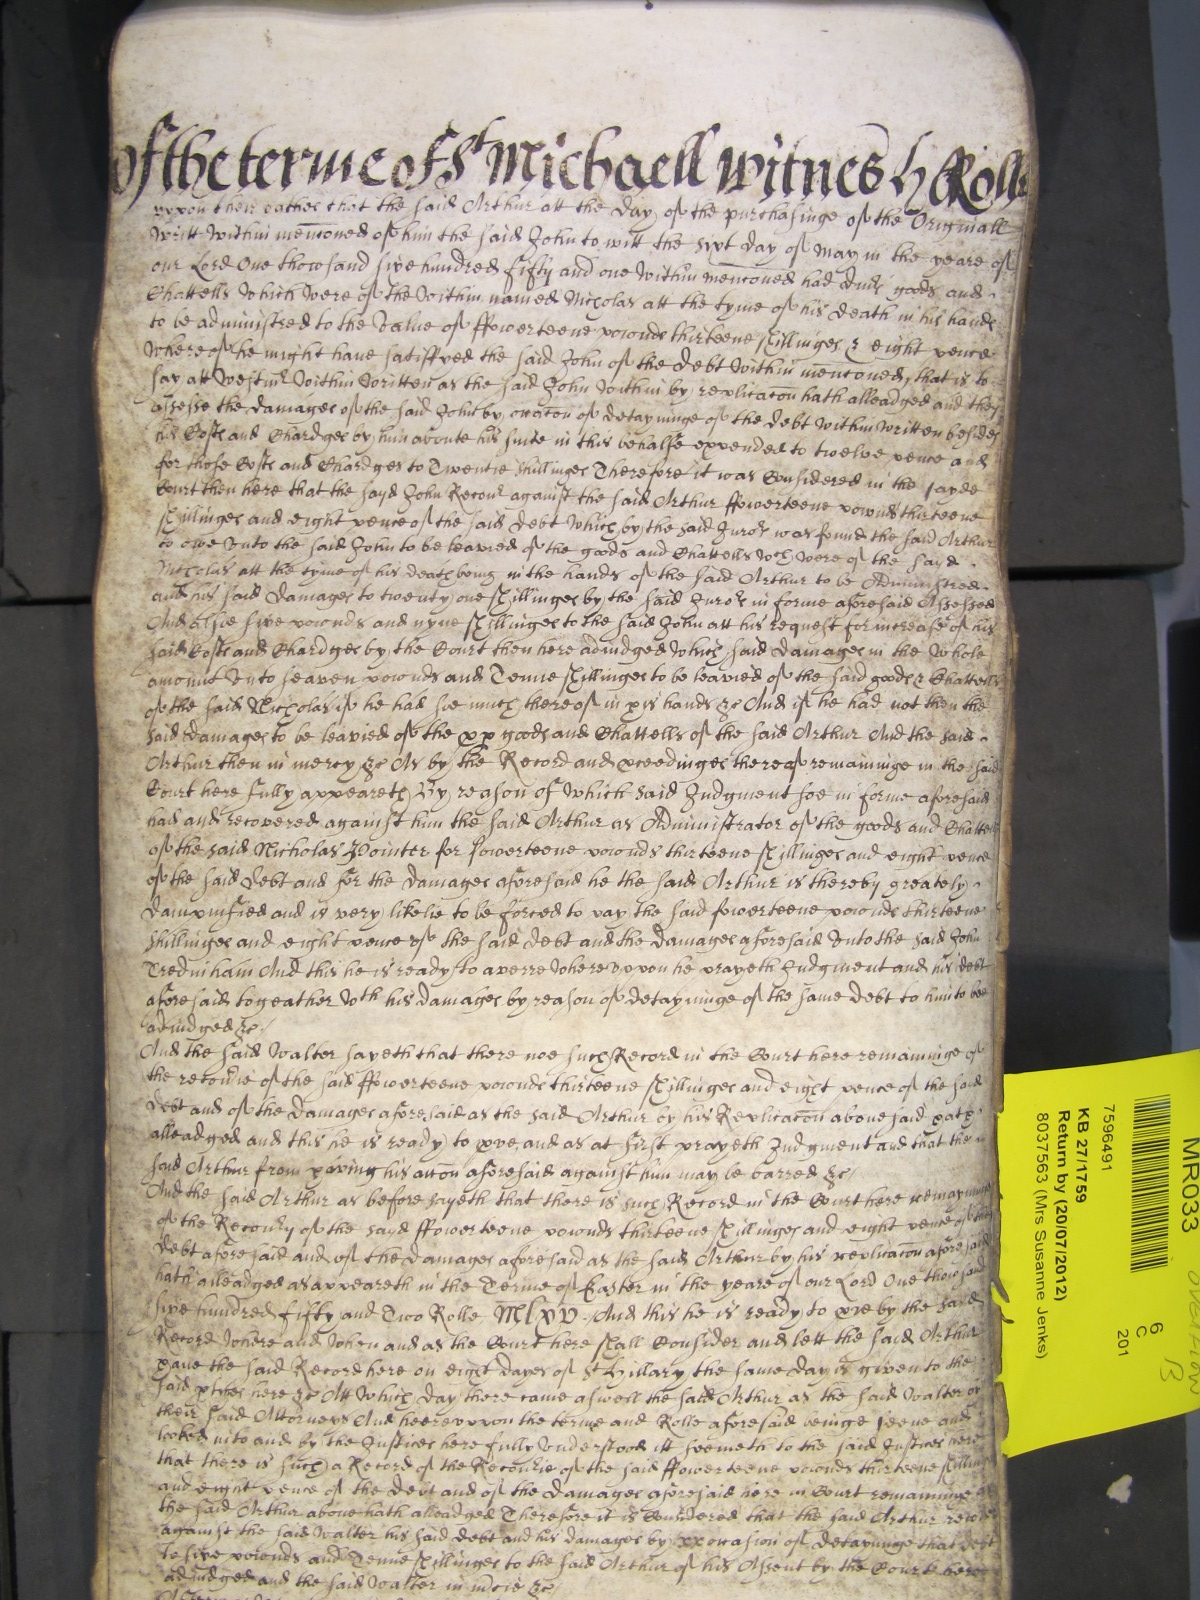 of the terme of St Michaell witnes H Rolle
uppon their oathes that the said Arthur att the day of the purchasinge of the Originall
Writt within menconed of him the said John to witt the day of May in the yeare of
our Lord One thowsand sixe hundred fifty and one within menconed had divers goods and
Chattells which were of the within named Nicholas att the tyme of his death in his hands
to be administred to the value of ffowerteene pounds thirteene shillinges & eight pence
whereof he might have satisfyed the said John of the debt within menconed, that is to
say att Westmr within written as the said John within by replicacon hath alleadged and they
assesse the damages of the said John by occacon of detayninge of the debt within written besides
his Costs and Chardges by him aboute his suite in this behalfe expended to twelve pence and
for those Costs and Chardges to Twentie shillinges Therefore it was Considered in the
Court then here that the sayd John Recovr against the said Arthur ffowerteene pounds thirteene
shillinges and eight pence of the said debt which by the said Jurors was found the said Arthur
to owe unto the said John to be leavied of the goods and Chattells wch were of the sayd
Nicholas att the tyme of his death being in the hands of the said Arthur to be Administred
and his said damages to twenty one shillinges by the said Jurors in forme aforesaid Assessed
And Alsoe sixe pounds and nyne shillinges to the said John att his request for increase of his
said Costs and Chardges by the Court then here adiudged which said damages in the whole
amount unto seaven pounds and Tenne shillinges to be leavied of the said goods & Chattells
of the said Nicholas if he had soe much thereof in his hands &c And if he had not then the
said damages to be leavied of the pp goods and Chattells of the said Arthur And the said
Arthur then in mercy &c As by the Record and pceedinges thereof remaininge in the said
Court here fully appeareth By reason of which said Judgment soe in forme aforesaid
had and recovered against him the said Arthur as Administrator of the goods and Chattells
of the said Nicholas Pointer for fowerteene pounds thirteene shillinges and eight pence
of the said debt and for the damages aforesaid he the said Arthur is thereby greately
dampnified and is very likelie to be forced to pay the said fowerteene pounds thirteene
shillinges and eight pence of the said debt and the damages aforesaid unto the said John
Tredinham And this he is ready to averre whereuppon he prayeth Judgment and his debt
aforesaid togeather wth his damages by reason of detayninge of the same debt to him to bee
adiudged &c
And the said Walter sayeth that there noe such Record in the Court here remaininge of
the recovie of the said ffowerteene pounds thirteene shillinges and eight pence of the said
debt and of the damages aforesaid as the said Arthur by his Replicacon above said hath
alleadged and this he is ready to pve and as at first prayeth Judgment and that the
said Arthur from haveing his accon aforesaid against him may be barred &c
And the said Arthur as before sayeth that there is such Record in the Court here remayninge
of the Recovy of the sayd ffowerteene pounds thirteene shillinges and eight pence of the
debt aforesaid and of the damages aforesaid as the said Arthur by his replicacon aforesaid
hath alleadged as appeareth in the Terme of Easter in the yeare of our Lord One thowsand
sixe hundred fifty and Two Rolle Mlxv And this he is ready to pve by the said
Record where and when and as the Court here shall Consider and lett the said Arthur
have the said Record here on eight dayes of St Hillary the same day is given to the
said pties here &c Att which day there came aswell the said Arthur as the said Walter by
their said Attorneys And heereuppon the terme and Rolle aforesaid beinge seene and
looked into and by the Justices here fully understood itt seemeth to the said Justices here
that there is such a Record of the Recovie of the said ffowerteene pounds thirteene shillinges
and eight pence of the debt and of the damages aforesaid here in Court remaininge as
the said Arthur above hath alleadged Therefore it is Considered that the said Arthur recover
against the said Walter his said debt and his damages by occasion of detayninge that debt
to sixe pounds and Tenne shillinges to the said Arthur of his Assent by the Court here
adiudged and the said Walter in mcie &c
MR033
7596491
KB 27/1759
Return by (20/07/2012)
8037563 (Mrs Susanne Jenks)
6
C
201